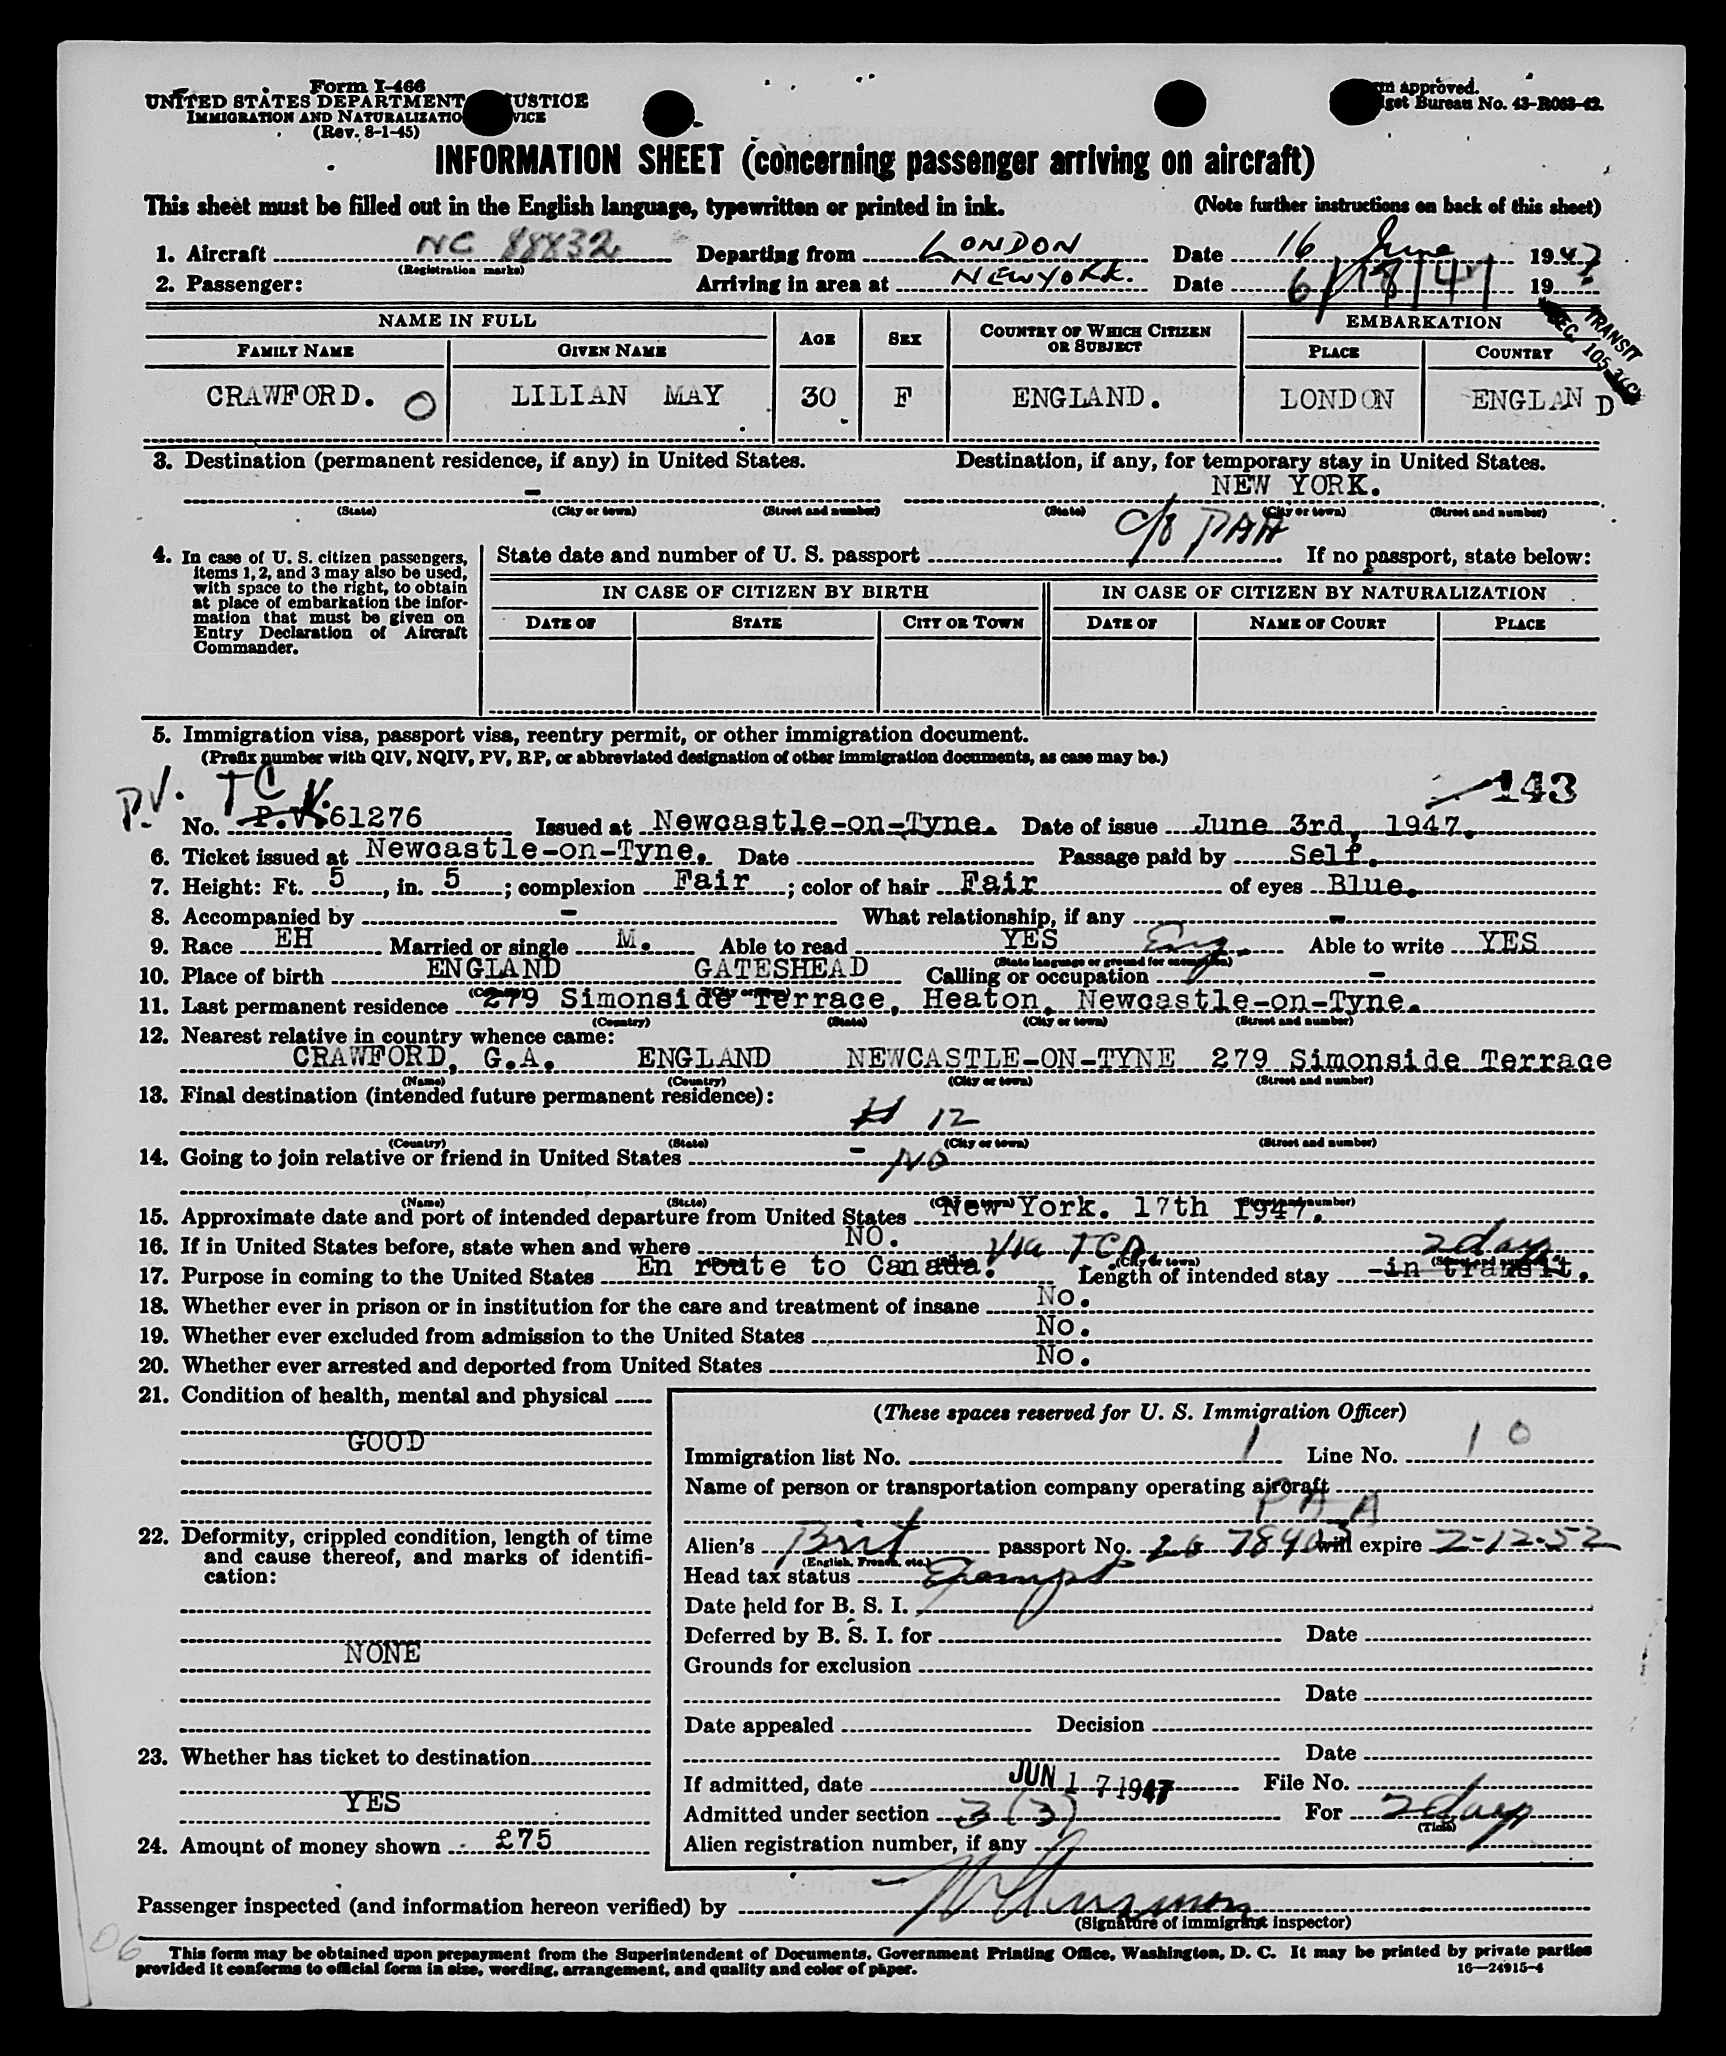 Form I-466
UNITED STATES DEPARTMENT JUSTICE
IMMIGRATION AND NATURALIZATIO VICE
(Rev. 8-1-45)
m approved.
get Bureau No. 43-R083-42.
INFORMATION SHEET (concerning passenger arriving on aircraft)
This sheet must be filled out in the English language, typewritten or printed in ink. (Note further instructions on back of this sheet)
1. Aircraft NC 88832 Departing from LONDON Date 16 June 1947
(Registration marks)
2. Passenger: Arriving in area at NEW YORK. Date 6/18/47 19
TRANSIT
SEC. 105.3(C)
NAME IN FULL AGE SEX COUNTRY OF WHICH CITIZEN OR SUBJECT EMBARKATION
FAMILY NAME GIVEN NAME PLACE COUNTRY
CRAWFORD. O LILIAN MAY 30 F ENGLAND. LONDON ENGLAND
3. Destination (permanent residence, if any) in United States. Destination, if any, for temporary stay in United States.
- NEW YORK.
(State) (City or town) (Street and number) (State) (City or town) (Street and number)
c/o PAA
4. In case of U. S. citizen passengers, items 1, 2, and 3 may also be used, with space to the right, to obtain at place of embarkation the information that must be given on Entry Declaration of Aircraft Commander.
State date and number of U. S. passport If no passport, state below:
IN CASE OF CITIZEN BY BIRTH IN CASE OF CITIZEN BY NATURALIZATION
DATE OF STATE CITY OR TOWN DATE OF NAME OF COURT PLACE
5. Immigration visa, passport visa, reentry permit, or other immigration document.
(Prefix number with QIV, NQIV, PV, RP, or abbreviated designation of other immigration documents, as case may be.)
P.V. TC V. 143
No. P.V. 61276 Issued at Newcastle-on-Tyne. Date of issue June 3rd, 1947.
6. Ticket issued at Newcastle-on-Tyne. Date Passage paid by Self.
7. Height: Ft. 5, in. 5; complexion Fair; color of hair Fair of eyes Blue.
8. Accompanied by - What relationship, if any -
9. Race EH Married or single M. Able to read YES Eng. Able to write YES
(State language or ground for exemption)
10. Place of birth ENGLAND GATESHEAD Calling or occupation -
(Country) (City or town)
11. Last permanent residence 279 Simonside Terrace, Heaton, Newcastle-on-Tyne.
(Country) (State) (City or town) (Street and number)
12. Nearest relative in country whence came:
CRAWFORD, G.A. ENGLAND NEWCASTLE-ON-TYNE 279 Simonside Terrace
(Name) (Country) (City or town) (Street and number)
13. Final destination (intended future permanent residence):
12
(Country) (State) (City or town) (Street and number)
14. Going to join relative or friend in United States - NO
(Name) (State) (City or town) (Street and number)
15. Approximate date and port of intended departure from United States New York. 17th 1947.
16. If in United States before, state when and where NO. Via TCA 2 days
(State) (City or town) (Street and number)
17. Purpose in coming to the United States En route to Canada. Length of intended stay in transit.
18. Whether ever in prison or in institution for the care and treatment of insane No.
19. Whether ever excluded from admission to the United States No.
20. Whether ever arrested and deported from United States No.
21. Condition of health, mental and physical
GOOD
22. Deformity, crippled condition, length of time and cause thereof, and marks of identification:
NONE
23. Whether has ticket to destination
YES
24. Amount of money shown £75
(These spaces reserved for U. S. Immigration Officer)
Immigration list No. 1 Line No. 10
Name of person or transportation company operating aircraft
PAA
Alien's Brit passport No. will expire 2-12-52
(English, French, etc.)
Head tax status Exempt
Date held for B. S. I.
Deferred by B. S. I. for Date
Grounds for exclusion
Date
Date appealed Decision
Date
If admitted, date JUN 17 1947 File No.
Admitted under section 3(3) For 2 days
(Time)
Alien registration number, if any
Passenger inspected (and information hereon verified) by
(Signature of immigrant inspector)
06
This form may be obtained upon prepayment from the Superintendent of Documents, Government Printing Office, Washington, D. C. It may be printed by private parties
provided it conforms to official form in size, wording, arrangement, and quality and color of paper. 16—24915-4